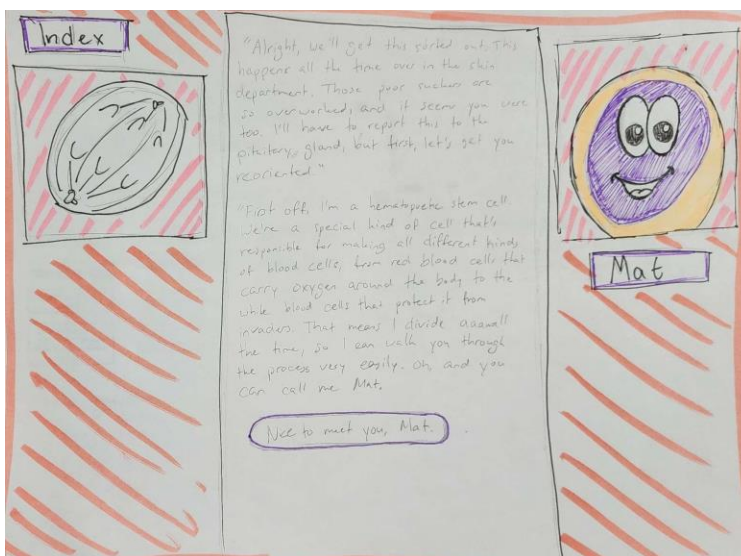 Index
"Alright, we'll get this sorted out. This
happens all the time over in the skin
department. Those poor suckers are
so overworked, and it seems you were
too. I'll have to report this to the
pituitary gland, but first, let's get you
reoriented."
"First off, I'm a hematopoetic stem cell.
We're a special kind of cell that's
responsible for making all different kinds
of blood cells, from red blood cells that
carry oxygen around the body to the
white blood cells that protect it from
invaders. That means I divide aaaaall
the time, so I can walk you through
the process very easily. Oh, and you
can call me Mat.
Nice to meet you, Mat.
Mat